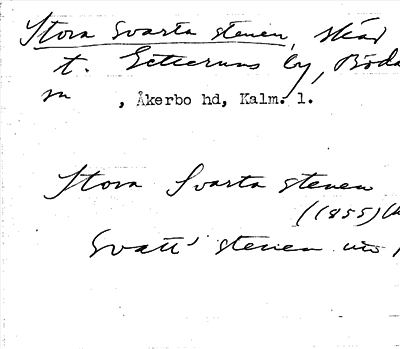 Stora svarta stenen, skär
t. Getteruns by, Böda
sn , Åkerbo hd, Kalm. l.
Stora Svarta stenen
(1855)
Svatt' stenen